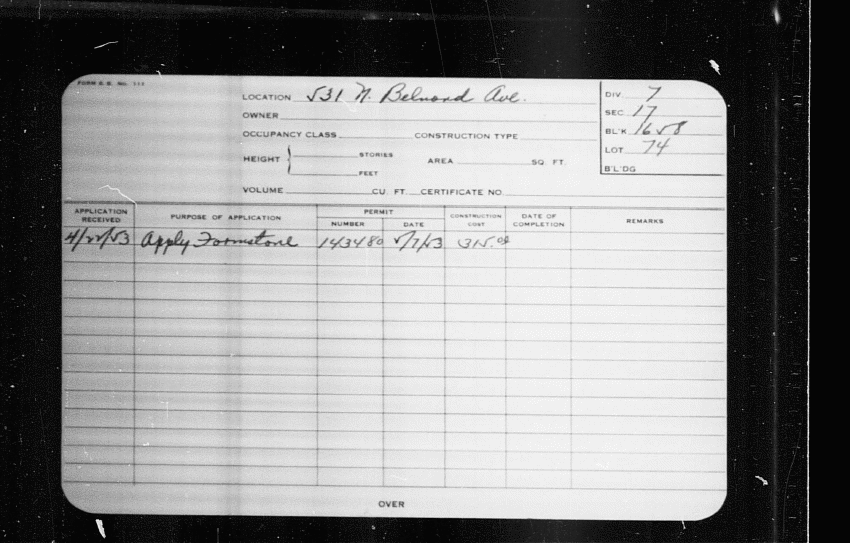 FORM Z. B. No. 113
LOCATION 531 N. Belnord Ave.
DIV. 7
OWNER
SEC 17
OCCUPANCY CLASS CONSTRUCTION TYPE
BL'K 1658
HEIGHT } STORIES FEET AREA SQ. FT.
LOT 74
B'L'DG
VOLUME CU. FT. CERTIFICATE NO.
APPLICATION RECEIVED PURPOSE OF APPLICATION PERMIT NUMBER DATE CONSTRUCTION COST DATE OF COMPLETION REMARKS
4/22/53 Apply Formstone 143480 5/7/53 315.00
OVER